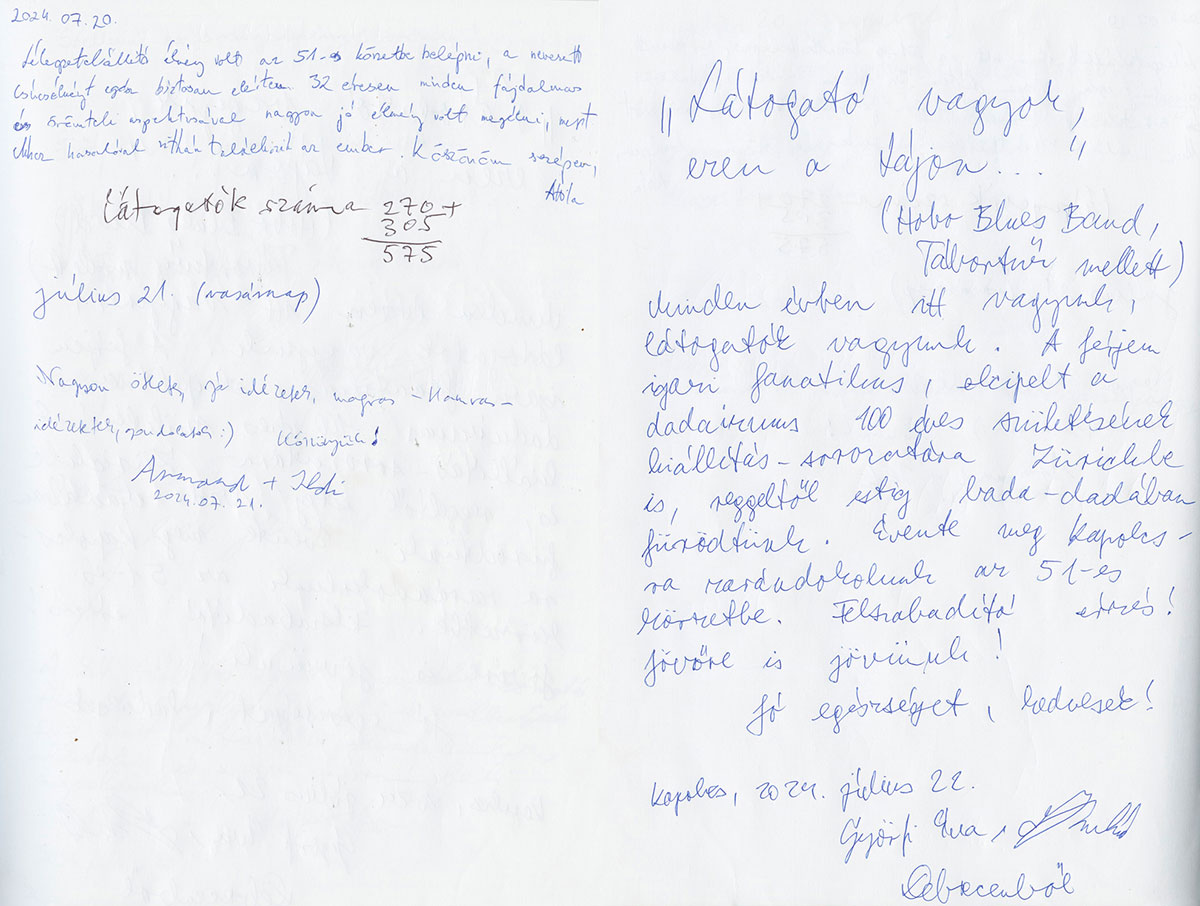 2024. 07. 20.
Lélegzetelállító élmény volt az 51-es körzetbe belépni, a nevesett
egyből biztosan elértem 32 évesen minden fájdalmas
és szünteli aspektusával nagyon jó élmény volt megélni, mert
ehhez hasonlóval ritkán találkozik az ember. Köszönöm szépen,
Attila
Látogatók száma 270 +
305
575
július 21. (vasárnap)
Nagyon ötletes, jó idézetek, magvas - Hamvas -
idézetek, gondolatok :) Köszönjük!
Armand + Ildi
2024. 07. 21.
„Látogató vagyok,
ezen a tájon..."
(Hobo Blues Band,
Tábortűz mellett)
Minden évben itt vagyunk,
látogatók vagyunk. A férjem
igazi fanatikus, elcipelt a
dadaizmus 100 éves születésének
kiállítás-sorozatára Zürichbe
is, reggeltől estig bada-dadában
fürödtünk. Évente meg Kapolcs-
ra zarándokolunk az 51-es
körzetbe. Felszabadító érzés!
Jövőre is jövünk!
Jó egészséget, kedvesek!
Kapolcs, 2024. július 22.
Győrfi Éva,
Debrecenből